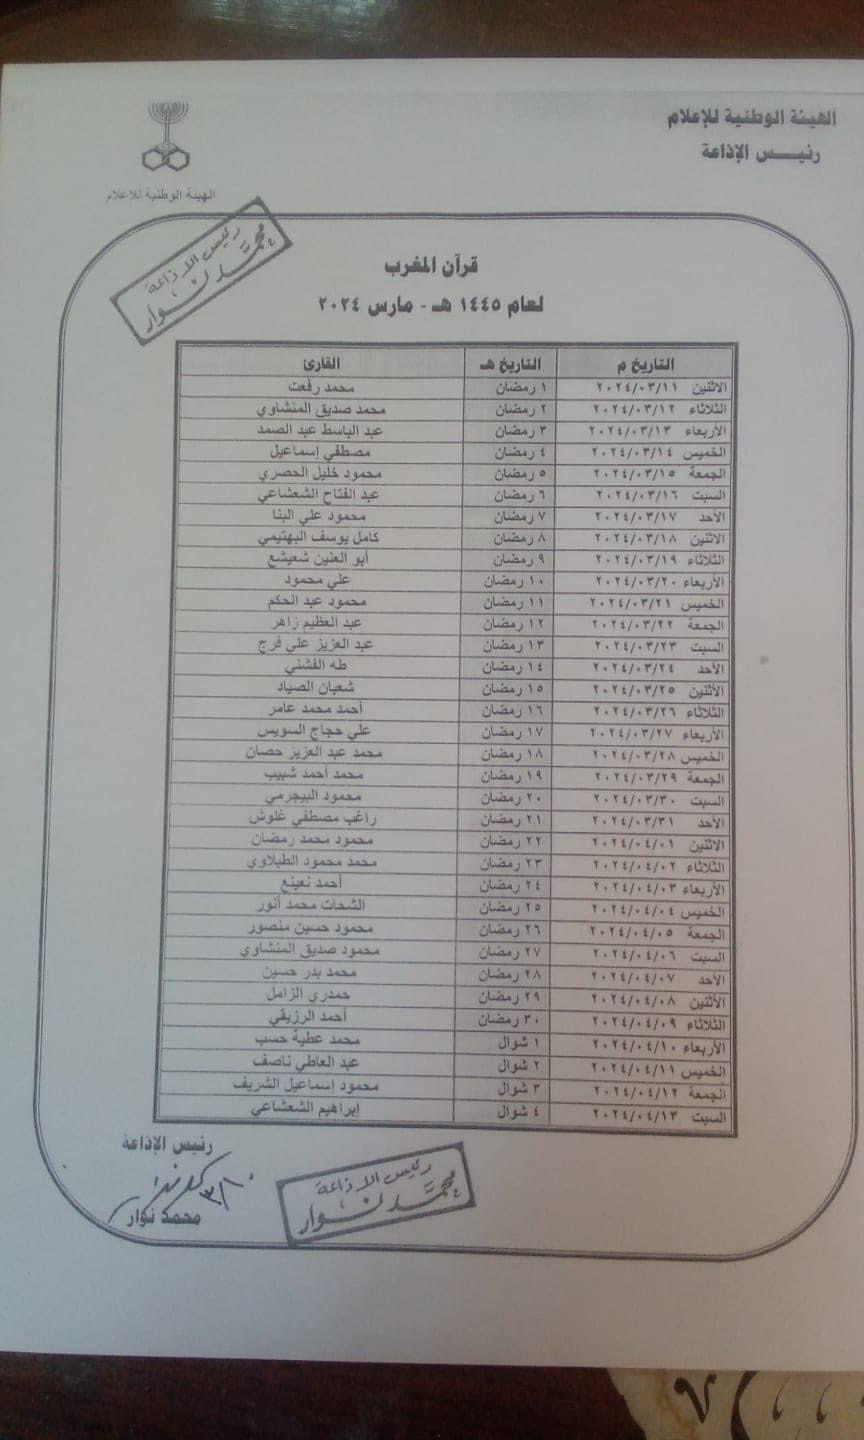 الهيئة الوطنية للإعلام
رئيس الإذاعة
الهيئة الوطنية للاعلام
رئيس الاذاعة
محمد نوار
قرآن المغرب
لعام ١٤٤٥ هـ - مارس ٢٠٢٤
التاريخ م التاريخ هـ القارئ
الاثنين ٢٠٢٤/٠٣/١١ ١ رمضان محمد رفعت
الثلاثاء ٢٠٢٤/٠٣/١٢ ٢ رمضان محمد صديق المنشاوي
الأربعاء ٢٠٢٤/٠٣/١٣ ٣ رمضان عبد الباسط عبد الصمد
الخميس ٢٠٢٤/٠٣/١٤ ٤ رمضان مصطفي إسماعيل
الجمعة ٢٠٢٤/٠٣/١٥ ٥ رمضان محمود خليل الحصري
السبت ٢٠٢٤/٠٣/١٦ ٦ رمضان عبد الفتاح الشعشاعي
الأحد ٢٠٢٤/٠٣/١٧ ٧ رمضان محمود علي البنا
الاثنين ٢٠٢٤/٠٣/١٨ ٨ رمضان كامل يوسف البهتيمي
الثلاثاء ٢٠٢٤/٠٣/١٩ ٩ رمضان أبو العنين شعيشع
الأربعاء ٢٠٢٤/٠٣/٢٠ ١٠ رمضان علي محمود
الخميس ٢٠٢٤/٠٣/٢١ ١١ رمضان محمود عبد الحكم
الجمعة ٢٠٢٤/٠٣/٢٢ ١٢ رمضان عبد العظيم زاهر
السبت ٢٠٢٤/٠٣/٢٣ ١٣ رمضان عبد العزيز علي فرج
الأحد ٢٠٢٤/٠٣/٢٤ ١٤ رمضان طه الفشني
الأثنين ٢٠٢٤/٠٣/٢٥ ١٥ رمضان شعبان الصياد
الثلاثاء ٢٠٢٤/٠٣/٢٦ ١٦ رمضان أحمد محمد عامر
الأربعاء ٢٠٢٤/٠٣/٢٧ ١٧ رمضان علي حجاج السويس
الخميس ٢٠٢٤/٠٣/٢٨ ١٨ رمضان محمد عبد العزيز حصان
الجمعة ٢٠٢٤/٠٣/٢٩ ١٩ رمضان محمد أحمد شبيب
السبت ٢٠٢٤/٠٣/٣٠ ٢٠ رمضان محمود البيجرمي
الأحد ٢٠٢٤/٠٣/٣١ ٢١ رمضان راغب مصطفي غلوش
الاثنين ٢٠٢٤/٠٤/٠١ ٢٢ رمضان محمود محمد رمضان
الثلاثاء ٢٠٢٤/٠٤/٠٢ ٢٣ رمضان محمد محمود الطبلاوي
الأربعاء ٢٠٢٤/٠٤/٠٣ ٢٤ رمضان أحمد نعينع
الخميس ٢٠٢٤/٠٤/٠٤ ٢٥ رمضان الشحات محمد أنور
الجمعة ٢٠٢٤/٠٤/٠٥ ٢٦ رمضان محمود حسين منصور
السبت ٢٠٢٤/٠٤/٠٦ ٢٧ رمضان محمود صديق المنشاوي
الأحد ٢٠٢٤/٠٤/٠٧ ٢٨ رمضان محمد بدر حسين
الأثنين ٢٠٢٤/٠٤/٠٨ ٢٩ رمضان حمدي الزامل
الثلاثاء ٢٠٢٤/٠٤/٠٩ ٣٠ رمضان أحمد الرزيقي
الأربعاء ٢٠٢٤/٠٤/١٠ ١ شوال محمد عطية حسب
الخميس ٢٠٢٤/٠٤/١١ ٢ شوال عبد العاطي ناصف
الجمعة ٢٠٢٤/٠٤/١٢ ٣ شوال محمود إسماعيل الشريف
السبت ٢٠٢٤/٠٤/١٣ ٤ شوال إبراهيم الشعشاعي
رئيس الإذاعة
٣/١٠
محمد نوار
رئيس الاذاعة
محمد نوار